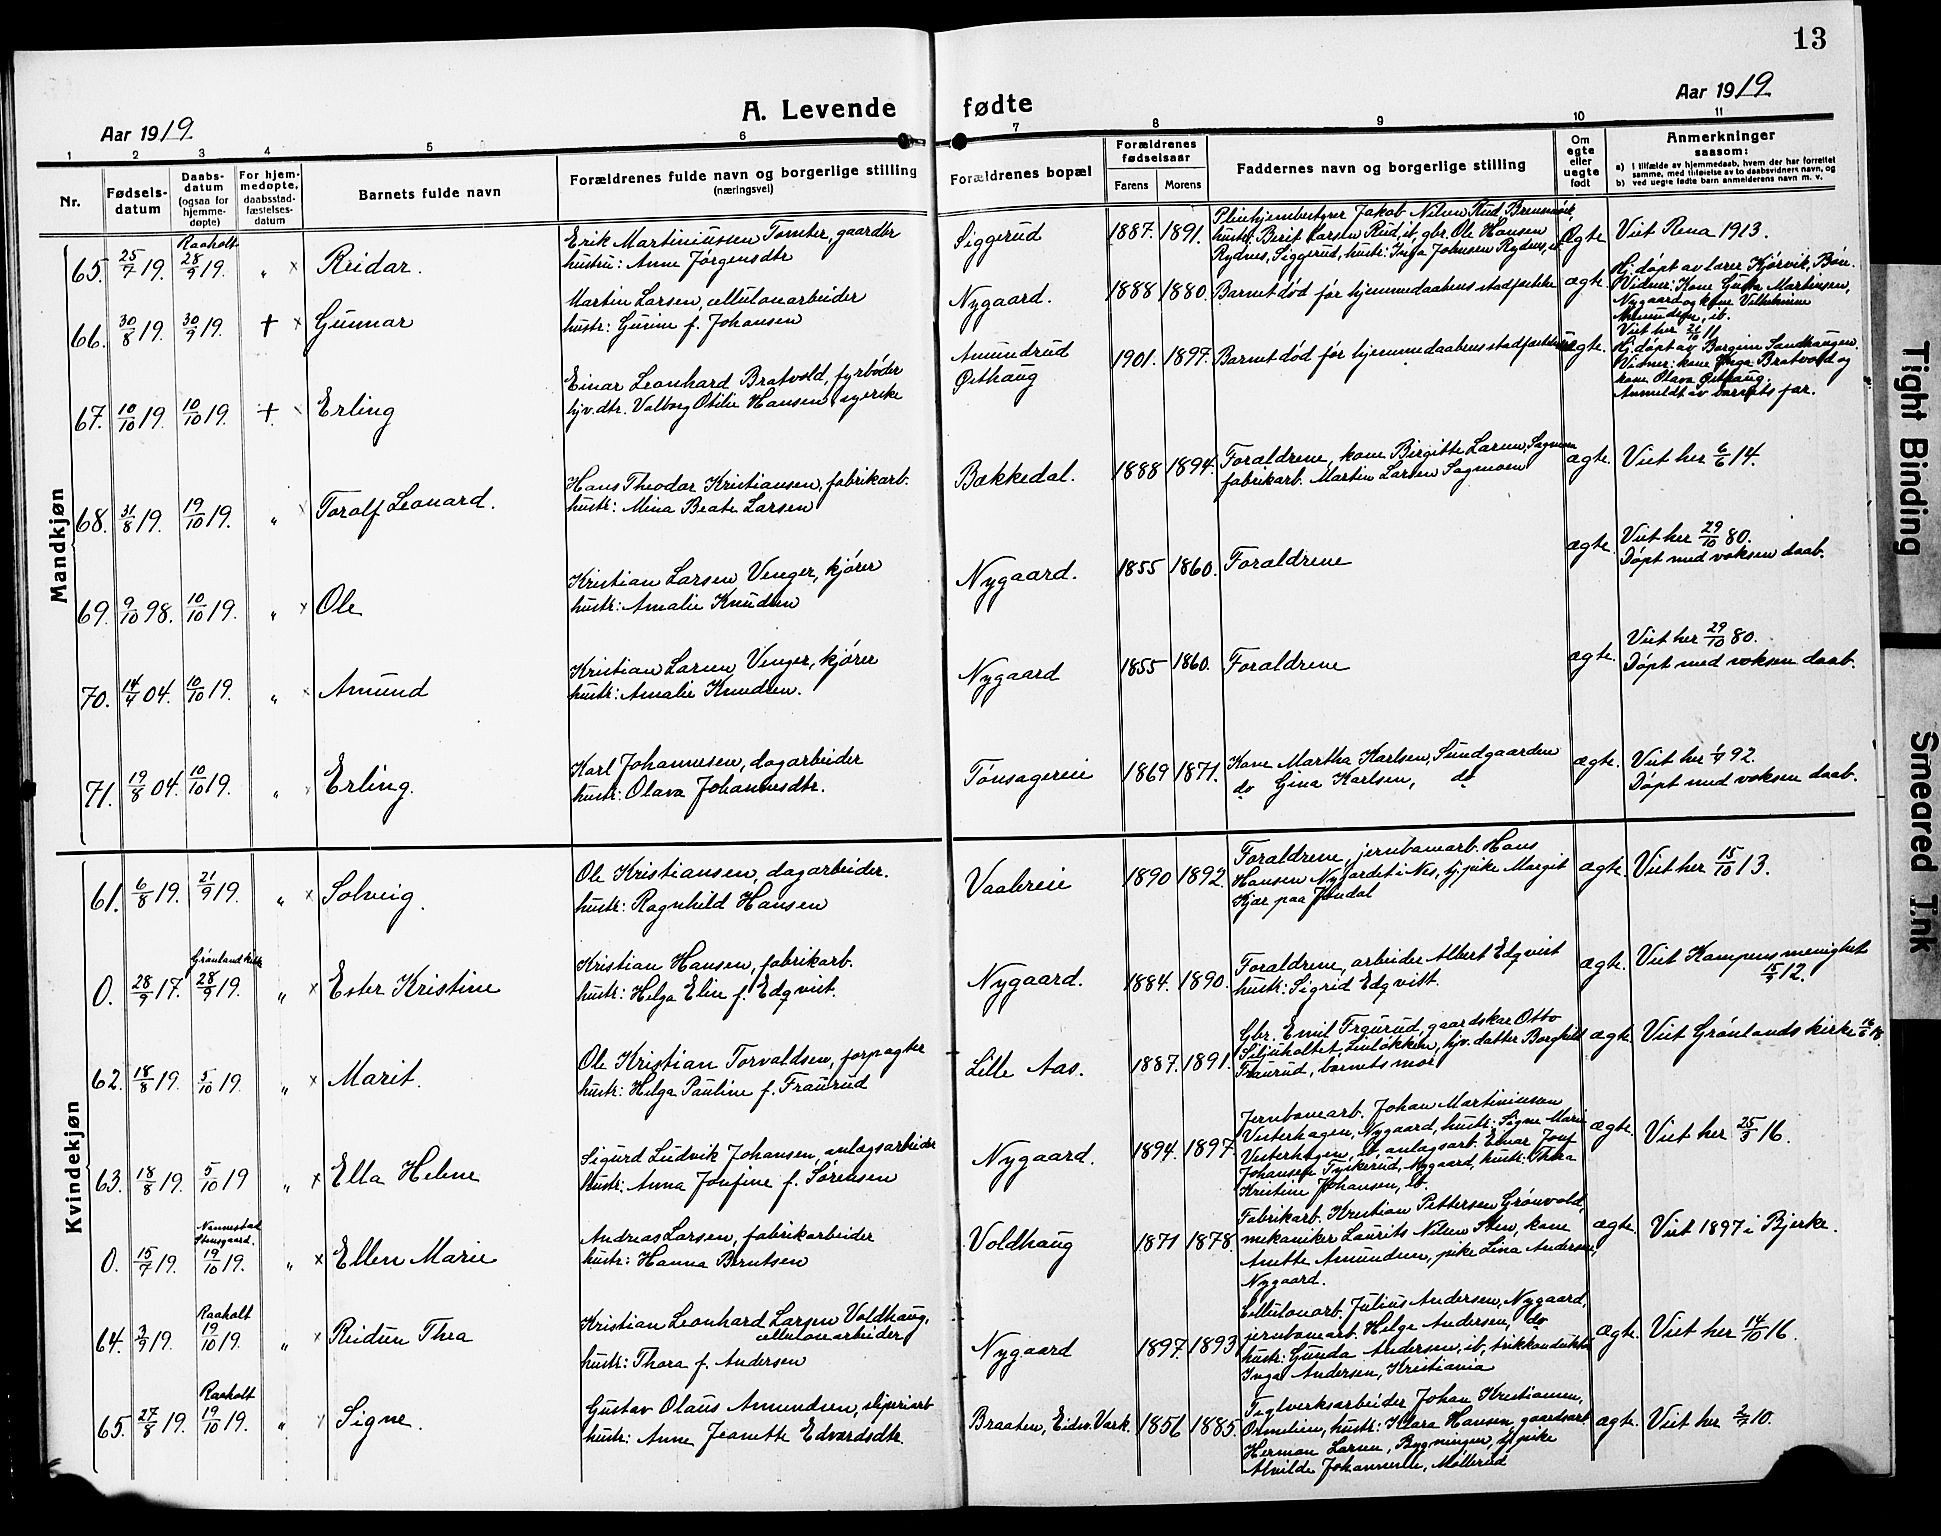 13
Aar 1919.
A. Levende fødte
Aar 1919
1 2 3 4 5 6 7 8 9 10 11
Nr.
Fødsels-
datum
Daabs-
datum
(ogsaa for
hjemme-
døpte)
For hjem-
medøpte,
daabsstad-
fæstelses-
datum
Barnets fulde navn
Forældrenes fulde navn og borgerlige stilling
(næringsvei)
Forældrenes bopæl
Forældrenes
fødselsaar
Farens Morens
Faddernes navn og borgerlige stilling
Om
egte
eller
uegte
født
Anmerkninger
saasom:
a) i tilfælde av hjemmedaab, hvem der har forrettet
samme, med tilføielse av to daabsvidners navn, og
b) ved uegte fødte barn anmelderens navn m. v.
Mandkjøn
65. 25/7 19. Raaholt 28/9 19. " × Reidar.
Erik Martiniussen Tomter, gaardbr
hustru: Anne Jørgensdtr
Siggerud 1887. 1891.
Pleiehjembestyrer Jakob Nilsen Rud
hustr: Berit Larsen Rud, ib. gbr. Ole Hansen
Rydnes, Siggerud, hustr: Inga Johnsen Rydnes, ib.
Ægte Viet Rena 1913.
66. 30/8 19. 30/9 19. + × Gunnar
Martin Larsen, cellulosearbeider
hustr: Gurine f. Johansen
Nygaard. 1888 1880. Barnet død før hjemmedaabens stadfæstelse ægte.
Hj. døpt av lærer Kjørvik, Bøn.
Vidner: Kone Gusta Martinsen,
Nygaard og kone Vilhelmine
Amundsen, ib.
Viet her 26/10 11.
67. 10/10 19. 10/10 19. + × Erling
Einar Leonhard Bratvold, fyrbøder
hjv. dtr. Valborg Otilie Hansen, syerske
Amundrud
Østhaug
1901. 1897. Barnet død før hjemmedaabens stadfæstelse uægte.
Hj. døpt av Borgine Sandhaugen.
Vidner: kone Inga Bratvold og
kone Olava Østhaug.
Anmeldt av barnets far.
68. 31/8 19. 19/10 19. " × Torolf Leonard.
Hans Theodor Kristiansen, fabrikarb.
hustr: Mina Beate Larsen
Bækkedal. 1888 1894.
Forældrene, kone Birgitte Larsen, Sagmoen
fabrikarb. Martin Larsen Sagmoen
ægte. Viet her 6/6 14.
69. 9/10 98. 10/10 19. " × Ole
Kristian Larsen Venger, kjører
hustr: Amalie Knudsen
Nygaard. 1855 1860. Forældrene ægte.
Viet her 29/10 80.
Døpt med voksen daab.
70. 14/4 04. 10/10 19. " × Amund
Kristian Larsen Venger, kjører
hustr: Amalie Knudsen.
Nygaard 1855 1860. Forældrene ægte.
Viet her 29/10 80.
Døpt med voksen daab.
71. 19/8 04. 10/10 19. " × Erling.
Karl Johannesen, dagarbeider
hustr: Olava Johannesdtr.
Tønsagereie 1869 1871.
Kone Martha Karlsen, Sundgaarden
do Gina Karlsen, do
ægte. Viet her 92.
Døpt med voksen daab.
Kvindekjøn
61. 6/8 19. 21/9 19. " × Solveig.
Ole Kristiansen, dagarbeider.
hustr: Ragnhild Hansen
Vaalereie 1890 1892.
Forældrene, jernbanearb. Hans
Hansen Nygardet i Nes, tj. pike Margit
Kjær paa Jøndal
ægte. Viet her 15/10 13.
0. 28/9 17. Grønland kirke 28/9 19. " × Ester Kristine
Kristian Hansen, fabrikarb.
hustr: Helga Elin f. Edqvist.
Nygaard. 1884. 1890.
Forældrene, arbeider Albert Edqvist
hustr: Sigrid Edqvist.
ægte. Viet Kampens menighet
12.
62. 18/8 19. 5/10 19. " × Marit.
Ole Kristian Torvaldsen, forpagter
hustr: Helga Pauline f. Fraurud
Lille Aas. 1887. 1891.
Gbr. Emil Fraurud, gaardskar Otto
Siljuholtet, hjv. datter Borghild
Fraurud, barnets mor
ægte. Viet Grønlands kirke 18.
63. 18/8 19. 5/10 19 " × Ella Helene
Sigurd Ludvik Johansen, anlægsarbeider
hustr: Anna Josefine f. Sørensen
Nygaard. 1894. 1897
Jernbanearb. Johan Martiniussen
Vesterhagen, Nygaard, hustr: Signe Marie
Vesterhagen, ib, anlægsarb. Einar Josef
Johansen Tyskerud, Nygaard, hustr: Thea
Kristine Johansen, ib.
ægte. Viet her 25/3 16.
0. 15/7 19. Nannestad
Stensgaard. 19/10 19. " × Ellen Marie
Andreas Larsen, fabrikarbeider
hustr: Hanna Berntsen
Voldhaug 1871 1878.
Fabrikarb. Kristian Pettersen Grønvold,
mekaniker Laurits Nilsen Sten, kone
Anette Amundsen, pike Lina Andersen,
Nygaard.
ægte. Viet 1897 i Bjerke.
64. 3/9 19. Raaholt 19/10 19. " × Reidun Thea
Kristian Leonhard Larsen Voldhaug,
cellulosearbeider
hustr: Thora f. Andersen
Nygaard 1897. 1893
Cellulosearb. Julius Andersen, Nygaard,
jernbanearb. Helge Andersen, do
hustr: Gunda Andersen, ib, trikkonduktør
Inga Andersen, Kristiania
Ægte. Viet her 14/10 16.
65. 27/8 19. Raaholt 19/10 19. " × Signe.
Gustav Olaus Amundsen, sliperiarb
hustr: Anne Jeanette Edvardsdtr.
Braaten, Eidsv. Værk. 1856 1885.
Teglverksarbeider Johan Kristiansen,
Ormelien, hustr: Klara Hansen, gaardsarb.
Herman Larsen, Bygningen, tj. pike
Alvilde Johannesen, Møllerud
ægte. Viet her 10.
Tight Binding
Smeared Ink